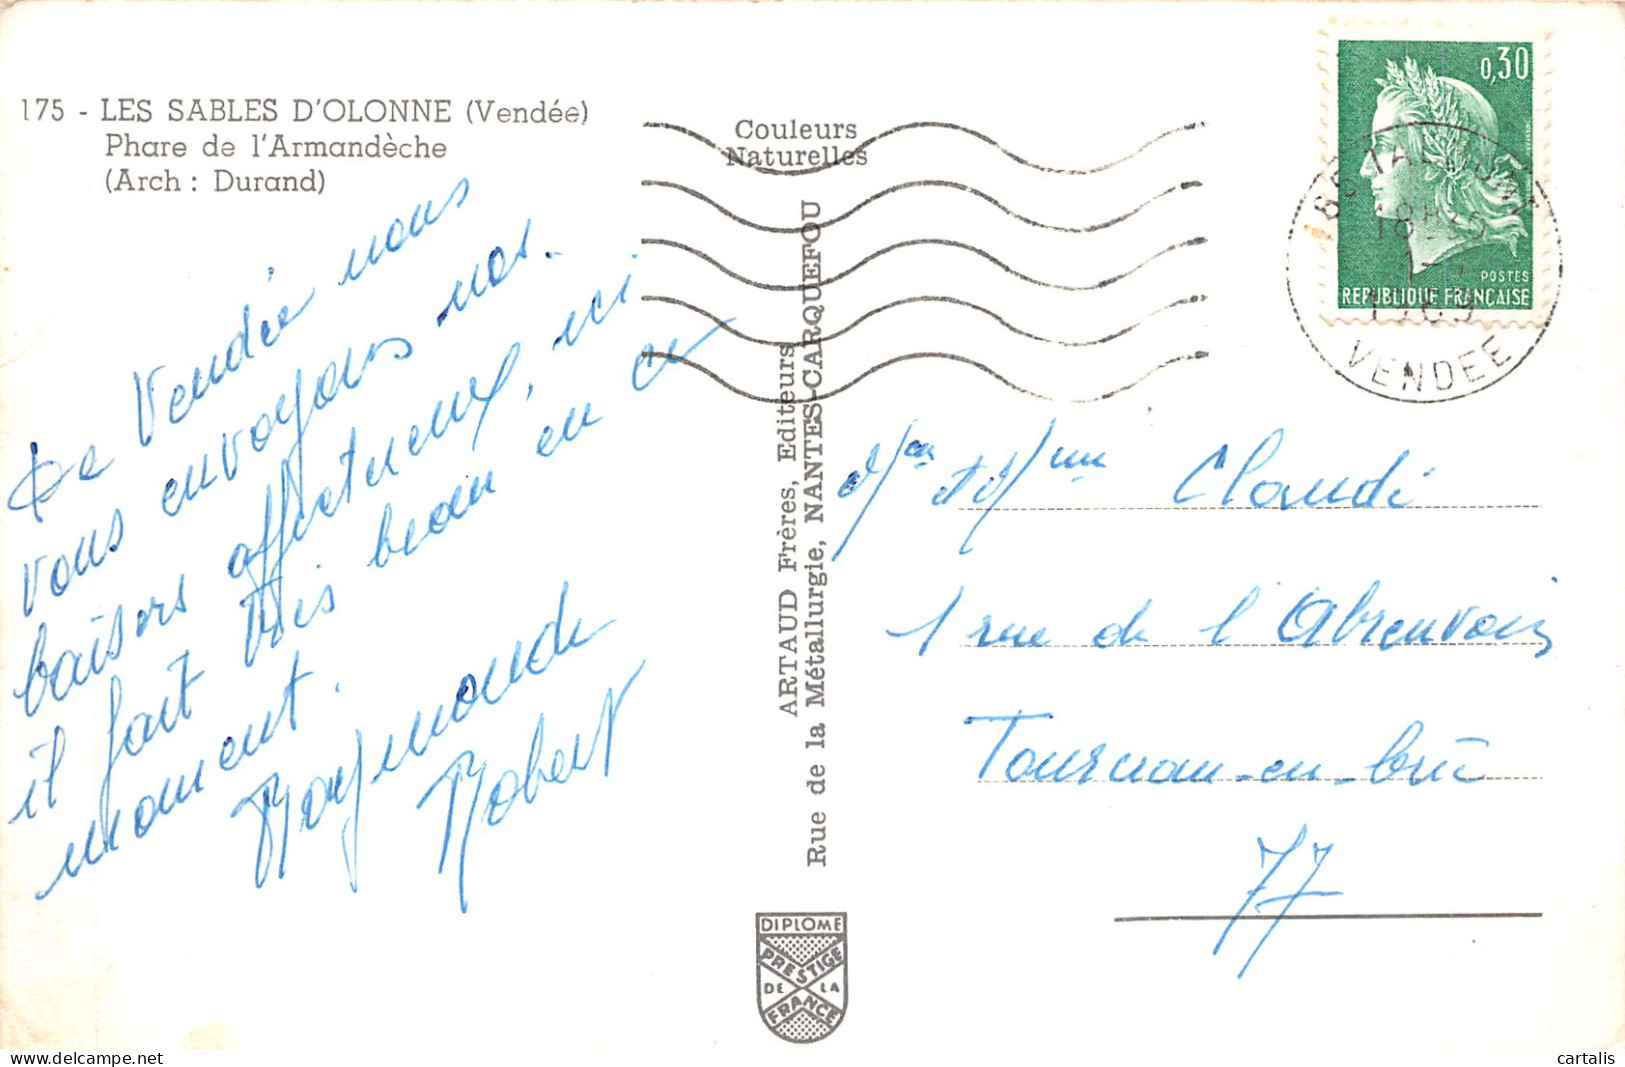 175 - LES SABLES D'OLONNE (Vendée)
Phare de l'Armandèche
(Arch : Durand)
De Vendée nous
vous envoyons nos
baisers affectueux, ici
il fait très beau en ce
moment.
Raymonde
Robert
Couleurs
Naturelles
ARTAUD Frères, Editeurs
Rue de la Métallurgie, NANTES-CARQUEFOU
DIPLOME
PRESTIGE
DE LA
FRANCE
0,30
POSTES
REPUBLIQUE FRANÇAISE
1969
VENDEE
Mr et Mme Claude
1 rue de l'Abreuvoir
Tournan-en-brie
77
cartalis
www.delcampe.net